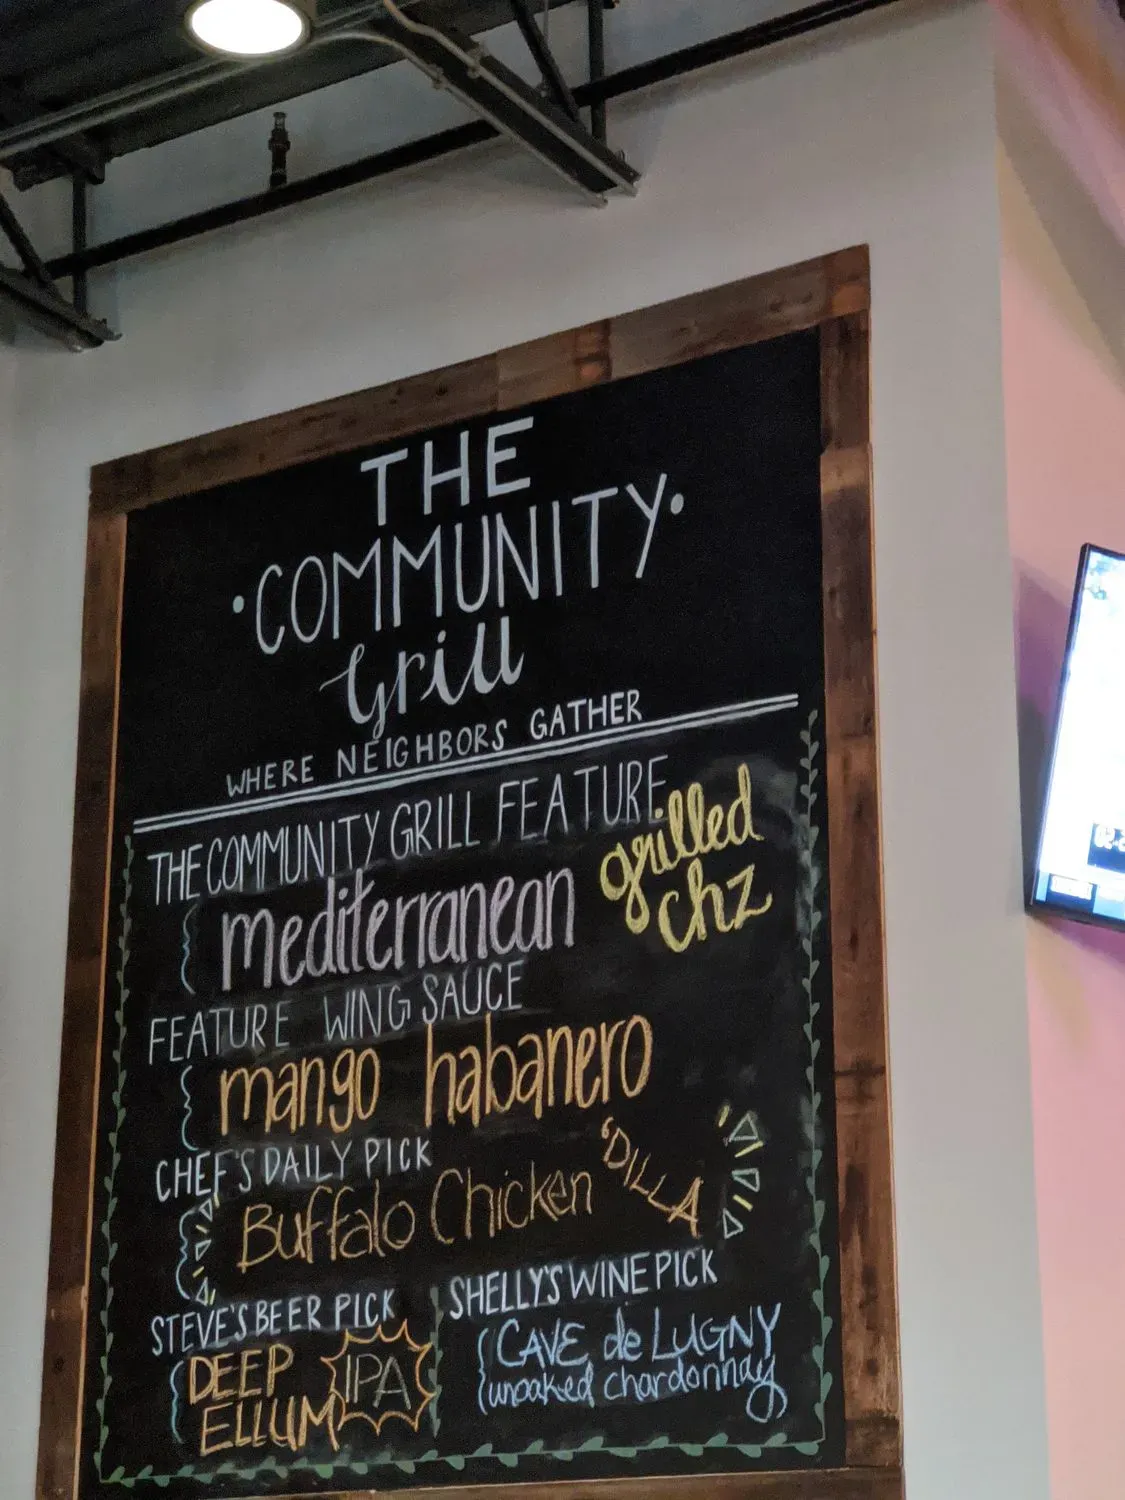 THE
·COMMUNITY·
Grill
WHERE NEIGHBORS GATHER
THE COMMUNITY GRILL FEATURE
mediterranean grilled chz
FEATURE WING SAUCE
mango habanero
CHEF'S DAILY PICK
Buffalo Chicken 'DILLA
STEVE'S BEER PICK
DEEP
ELLUM IPA
SHELLY'S WINE PICK
CAVE de LUGNY
unoaked chardonnay